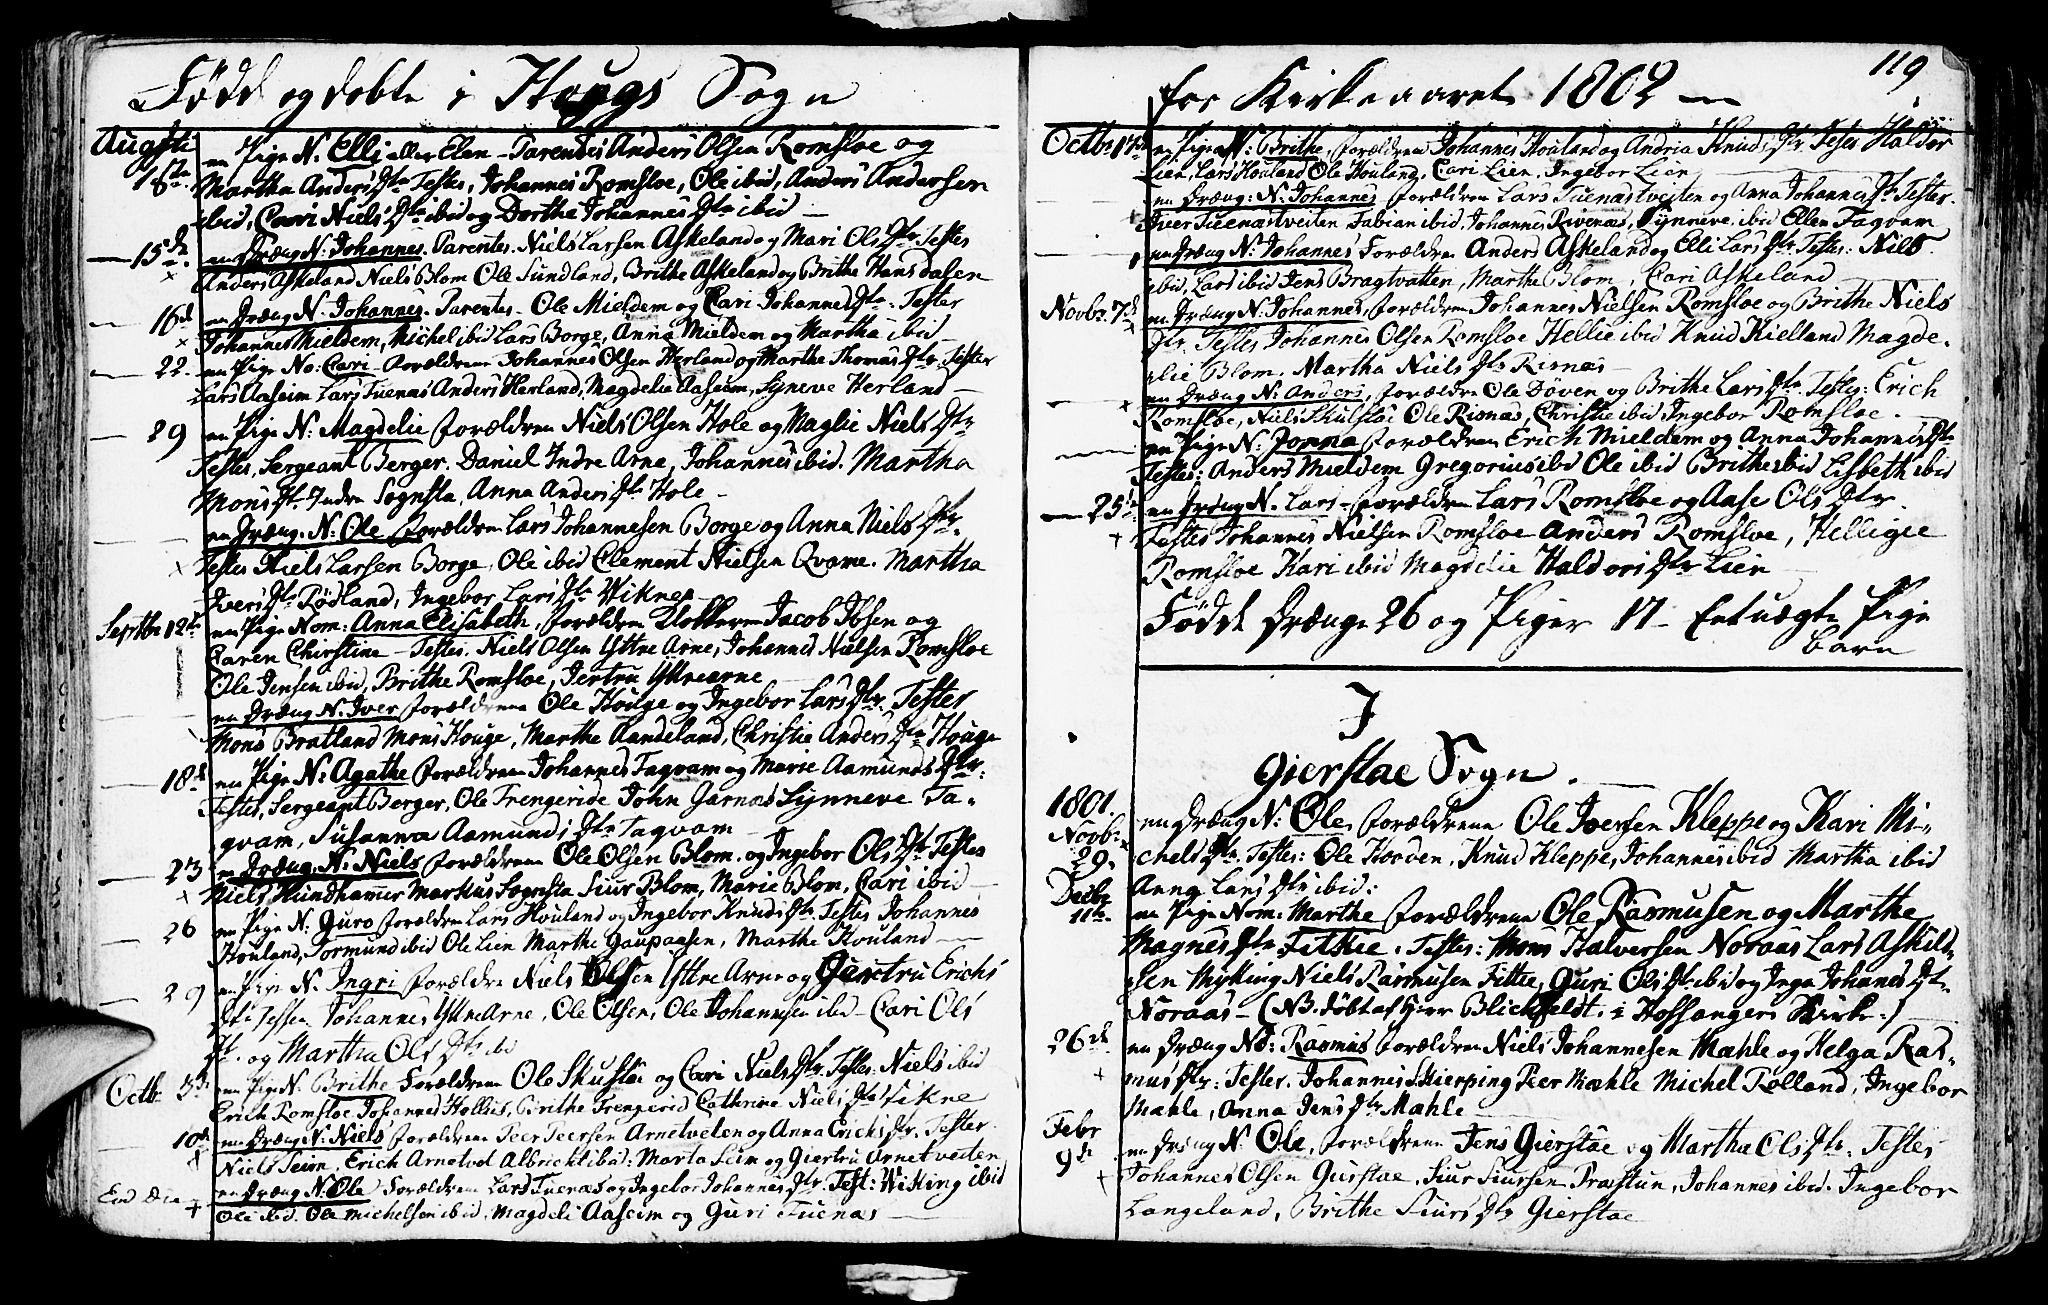 Fødd og døbte i Hougs Sogn
Augsti en Pige N. Elli eller Elen - Parentes Anders Olsen Romsloe og
Martha Anders Dtr Testes, Johannes Romsloe, Ole ibid, Anders Andersen
ibid, Cari Niels Dtr ibid og Dorthe Johannes Dtr ibid
15de en Dreng N. Johannes. Parentes. Niels Larsen Askeland og Mari Ols Dtr Testes
Anders Askeland Niels Blom Ole Sundland, Brithe Askeland og Brithe Hansdasen
16de en Dreng N. Johannes. Parentes. Ole Mieldem og Cari Johannes Dtr: Tester
Johannes Mieldem, Michel ibid Lars Borge, Anna Mieldem og Martha ibid
22. en Pige No: Cari - Forældrene Johannes Olsen Herland og Marthe Thomas Dtr. Tester
Lars Aaseim Lars Tuenæs Anders Herland, Magdelie Aaseim, Syneve Herland
29 en Pige N: Magdelie Forældren Niels Olsen Hole og Maglie Niels Dtr
Testes, Sergeant Berger, Daniel Indre Arne, Johannes ibid. Martha
Mons Dt. Indre Sognstæ, Anna Anders Dtr Hole
en Dreng. N: Ole Forældren Lars Johannesen Borge og Anna Niels Dtr.
Testes Niels Larsen Borge, Ole ibid Clement Nielsen Qvame. Martha
Ivers Dtr Rødland, Ingebor Lars Dtr Wiknes
Septbr 12te en Pige Nom: Anna Elisabeth, Forældren Klokkeren Jacob Ibsen og
Caren Christine - Testes. Niels Olsen Yttre Arne, Johannes Nielsen Romsloe
Ole Jensen ibid, Brithe Romsloe, Jertru Yttrearne
en Dreng N. Iver Forældrene Ole Houge og Ingebor Lars Dtr. Tester
Mons Bratland Mons Houge, Marthe Aandeland, Christie Anders Dtr Houge
18de en Pige N: Agathe Forældrene Johannes Tagvam og Marie Aamunds Dtr:
Testes, Sergeant Berger, Ole Trengeride John Garnæs Synneve Ta-
gvam, Susanna Aamunds Dtr Tagvam
23 en Dreng. N: Niels Forældrene Ole Olsen Blom. og Ingebor Ols Dtr Testes
Niels Hundhamer Markus Sognstæ Siur Blom, Marie Blom, Cari ibid
26 en Pige N. Guro Forældren Lars Houland og Ingebor Knuds Dtr. Testes Johannes
Houland, Tormund ibid Ole Lien Marthe Gaupaasen, Marthe Houland
29 en Pige N. Ingri Forældre Niels Olsen Yttre Arne og Giertru Erichs
Dtr Testes Johannes Yttre Arne, Ole Olsen, Ole Johannesen ibid - Cari Ols
Dt. og Martha Ols Dtr ibid
Octb. 3de en Pige N. Brithe Forældrene Ole Skustæ og Cari Niels Dtr. Testes: Niels ibid
Erich Romsloe Johannes Hollius, Birithe Trengerid Cathrine Niels Dtr Vikne
10de en Dreng N: Niels Forældren Peer Peersen Arnetveten og Anna Erichs Dtr. Tester.
Niels Seim, Erich Arnetvet Albricht ibid: Marta Seim og Giertru Arnetveiten
Eod Die en Dreng N. Ole Forældren Lars Tuenæs og Ingebor Johannes Dtr. Test: Wiking ibid
Ole ibid. Ole Michelsen ibid, Magdeli Aaseim og Guri Tuenæs
119
for Kirkeaaret 1802
Octbr 17de en Pige N: Brithe, Forældren Johannes Houland og Andria Knuds Dtr. Testes Haldor
Lien, Lars Houland Ole Houland, Cari Lien, Ingebor Lien
en Dreng: N: Johannes Forældren Lars Tuenæstveiten og Anna Johannes Dtr Tester.
Iver Tuenæstveiten Fabian ibid, Johannes Rivenæs, Synneve ibid Ellen Tagvam
en Dreng N: Johannes Forældren Anders Askeland og Elli Lars Dtr. Testes: Niels
ibid, Lars ibid Jens Bragtvatten, Marthe Blom, Cari Askeland
Novbr. 7de en Dreng N. Johannes, Forældren Johannes Nielsen Romsloe og Brithe Niels
Dtr. Testes Johannes Olsen Romsloe Hellie ibid Knud Kielland Magde-
lie Blom. Martha Niels Dtr Risnæs
en Dreng N. Anders, Forældre Ole Døven og Brithe Lars Dtr. Testes: Erich
Romsloe, Niels Skulstæ Ole Risnæs, Christie ibid Ingebor Romsloe.
en Pige N. Jonna Forældren Erich Mieldem og Anna Johannes Dtr
Testes: Anders Mieldem Gregorius ibid Ole ibid Brithe ibid Lisbeth ibid
25 en Dreng N. Lars - Forældren Lars Romsloe og Aase Ols Dtr.
Testes Johannes Nielsen Romsloe Anders Romsloe, Helligie
Romsloe Kari ibid Magdelie Haldors Dtr Lien
Fødde Drenge 26 og Piger 17 - Et uægte Pige
barn
I
Gierstae Sogn.
1801. en Dreng N: Ole, Forældrene Ole Iversen Kleppe og Kari Mi-
Novb: 29. chels Dtr. Testes: Ole Hovden, Knud Kleppe, Johannes ibid Martha ibid
Anna Lars Dtr ibid:
Decbr 11te en Pige Nom: Marthe Forældrene Ole Rasmusen og Marthe
Magnes Dtr Fitkie. Testes: Mons Halversen Noraas Lars Askild-
sen Mykking Niels Rasmusen Fitte, Guri Ols Dtr ibid og Inga Johannes Dt.
Noraas - (NB. døbt af Herr Blichfeldt. i Hossanger Kirke:)
26de en Dreng No: Rasmus Forældren Niels Johannesen Mæhle og Helga Ras-
mus Dtr: Tester. Johannes Skierping Peer Mæhle Michel Rolland, Ingebor
Mæhle, Anna Jens Dtr Mæhle
Febr 9de en Dreng N. Ole, Forældrene Jens Gierstae og Martha Ols Dtr. Testes
Johannes Olsen Gierstae, Siur Siursen Præstun, Johannes ibid. Ingebor
Langeland, Brithe Siurs Dtr Gierstae